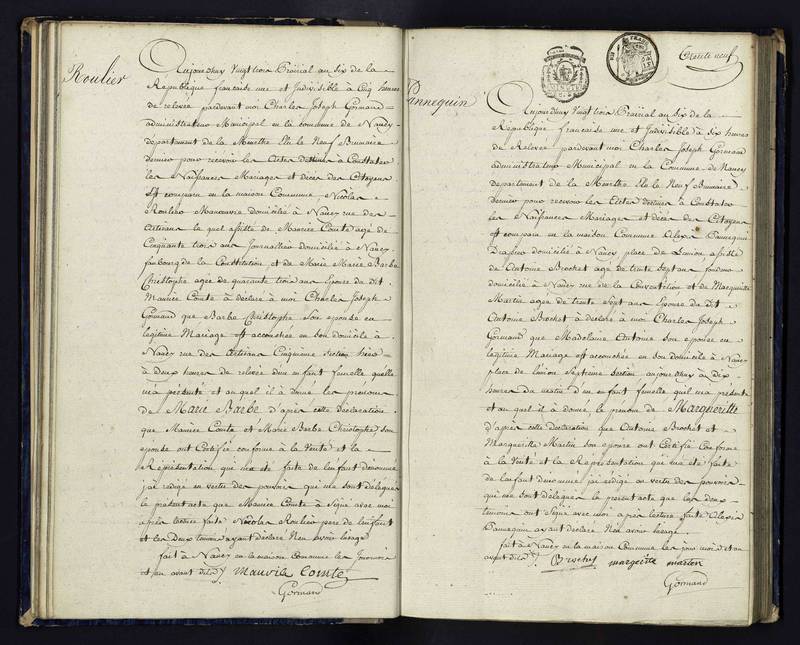 Roulier
Aujourdhuy Vingt trois Prairial an six de la
République française une et Indivisible à Cinq heures
de relevée pardevant moi Charles Joseph Gormand
administrateur Municipal en la commune de Nancy
département de la Meurthe Elu le Neuf Brumaire
dernier pour recevoir les Actes destinés à Constater
les Naissances Mariages et décès des Citoyens
Est comparu en la maison Commune, Nicolas
Roulier Manœuvre domicilié à Nancy rue des
Artisans la quel assisté de Maurice Comte agé de
Cinquante trois ans Journaillier domicilié à Nancy
faubourg de la Constitution, et de Marie Barbe
Christophe agée de quarante trois ans Epouse du dit
Maurice Comte à déclaré à moi Charles Joseph
Gormand que Barbe Christophe Son épouse en
legitime Mariage est accouchée en son domicile à
Nancy rue des Artisans Cinquieme Section hier
à deux heures de relevée d'un enfant femelle, quelle
m'a présenté et au quel il à donné les prenoms
de Marie Barbe d'après cette déclaration
que Maurice Comte et Marie Barbe Christophe, son
épouse ont Certifié conforme à la Vérité et la
Représentation qui m'a été faite de l'enfant dénommé
j'ai redigé en vertu des pouvoirs qui me sont délégués
le present acte que Maurice Comte à Signé avec moi
après lecture faite Nicolas Roulier pere de l'enfant
et les Deux temoins ayant déclaré Nen avoir l'usage
fait à Nancy en la maison Commune les Jour mois
et an avant dits Mauris Comte
Gormand
Pannequin
Trente neuf
Aujourdhuy Vingt trois Prairial an Six de la
République française une et Indivisible à Six heures
de Relevée pardevant moi Charles Joseph Gormand
administrateur Municipal en la Commune de Nancy
département de la Meurthe Elu le Neuf Brumaire
dernier pour recevoir les Actes destinés à Constater
les Naissances Mariages et décès des Citoyens
Est comparu en la maison Commune Alexis Pannequin
domicilié à Nancy place de L'union, assisté
de Antoine Brochet agé de trente Sept ans
domicilié à Nancy rue de la Convention et de Margueritte
Martin agée de trente Sept ans Epouse du dit
Antoine Brochet à déclaré à moi Charles Joseph
Gormand que Madelaine Antoine Son epouse en
legitime Mariage est accouchée en son domicile à Nancy
place de l'union Septieme Section aujourdhuy à Dix
heures du matin d'un enfant femelle quil m'a présenté
et au quel il à donné le prenom de Margueritte
d'après cette declaration que Antoine Brochet et
Margueritte Martin Son epouse ont Certifié Conforme
à la Vérité et la Représentation qui m'a été faite
de l'enfant denommé j'ai redigé en vertu des pouvoirs
qui me sont délégués le present acte que les deux
temoins ont Signé avec moi après lecture faite Alexis
Pannequin ayant declaré Nen avoir l'usage
fait à Nancy en la maison Commune les jour mois et an
avant dits Brochet margerite marten
Gormand